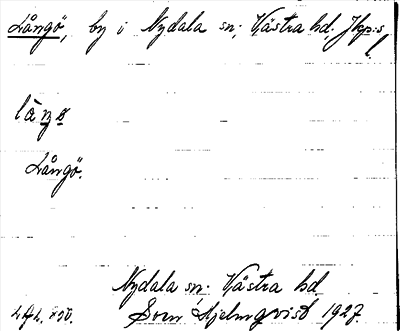 Långö, by i Nydala sn, Västra hd, Jkp:s l.
långö
Långö.
Nydala sn, Västra hd
Sven Hjelmqvist 1927.